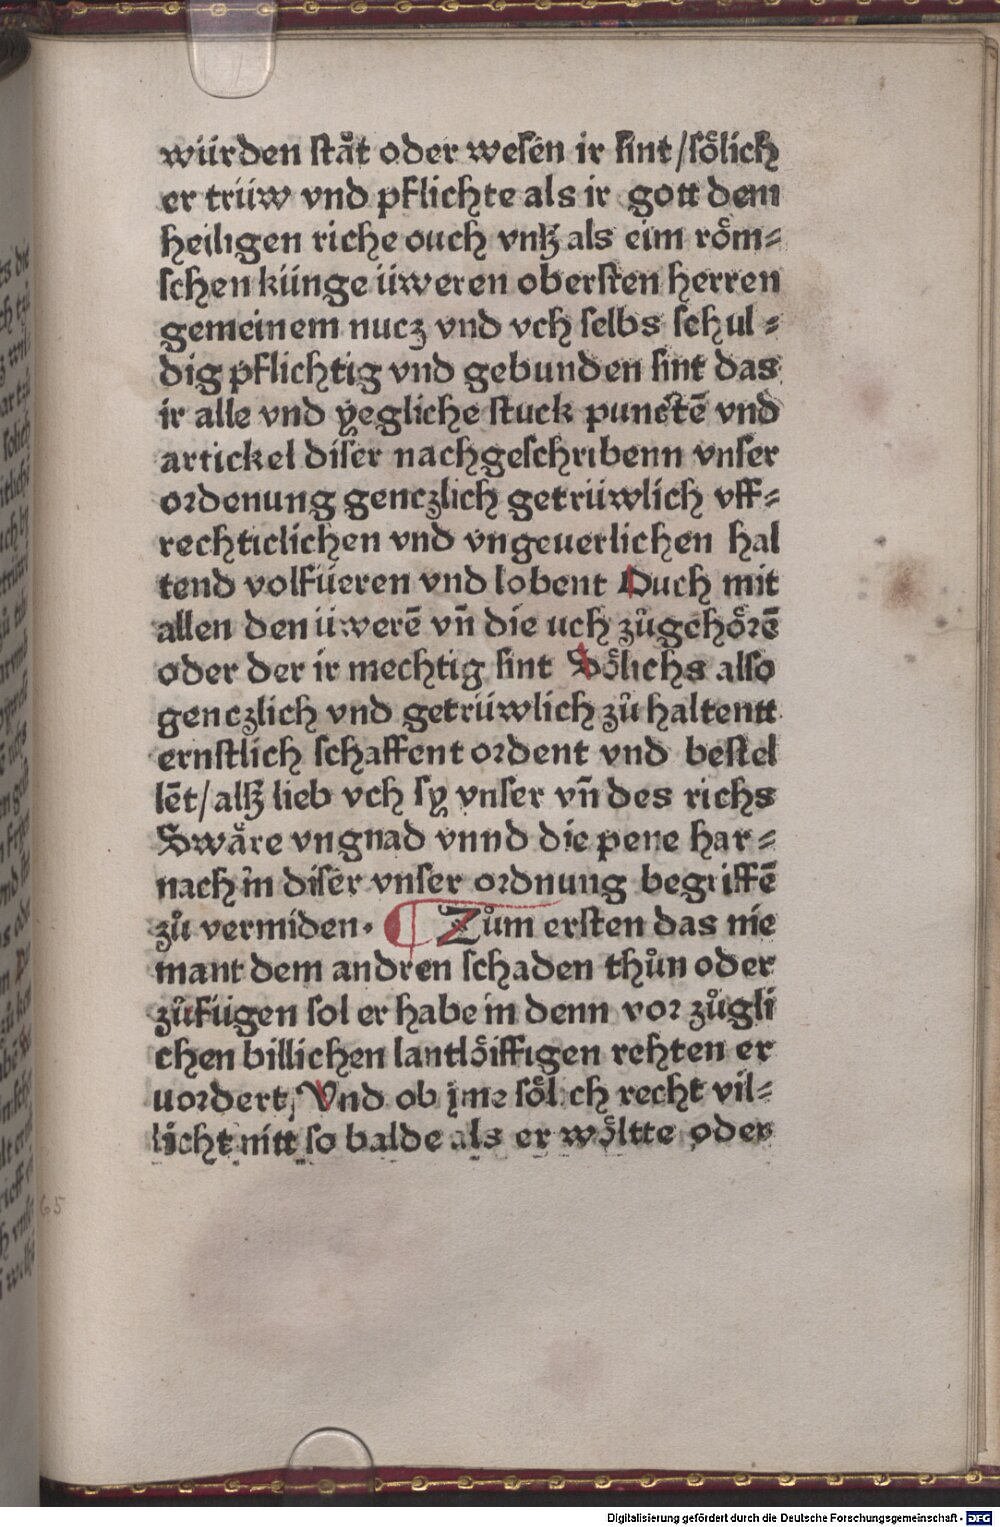 würden ſtåt oder weſen ir ſint/ſoͤlich
er trüw vnd pflichte als ir gott dem
heiligen riche ouch vnß als eim roͤm⸗
ſchen künge üweren oberſten herren
gemeinem nucz vnd vch ſelbs ſchul⸗
dig pflichtig vnd gebunden ſint das
ir alle vnd yegliche ſtuck punctē vnd
artickel diſer nachgeſchribenn vnſer
ordenung genczlich getrüwlich vff⸗
rechticlichen vnd vngeuerlichen hal
tend volfüeren vnd lobent Ouch mit
allen den üwerē vñ die uch zůgehoͤrē
oder der ir mechtig ſint Soͤlichs alſo
genczlich vnd getrüwlich zů haltentt
ernſtlich ſchaffent ordent vnd beſtel
lēt/alß lieb vch ſy vnſer vñ des richs
Swaͤre vngnad vnnd die pene har⸗
nach in diſer vnſer ordnung begriffē
zů vermiden. Zům erſten das nie
mant dem andren ſchaden thůn oder
zůfügen ſol er habe in denn vor zůgli
chen billichen lantloͤiffigen rehten er
uordert/ Vnd ob jme ſoͤlich recht vil⸗
licht nitt ſo balde als er woͤltte oder
65
Digitalisierung gefördert durch die Deutsche Forschungsgemeinschaft - DFG